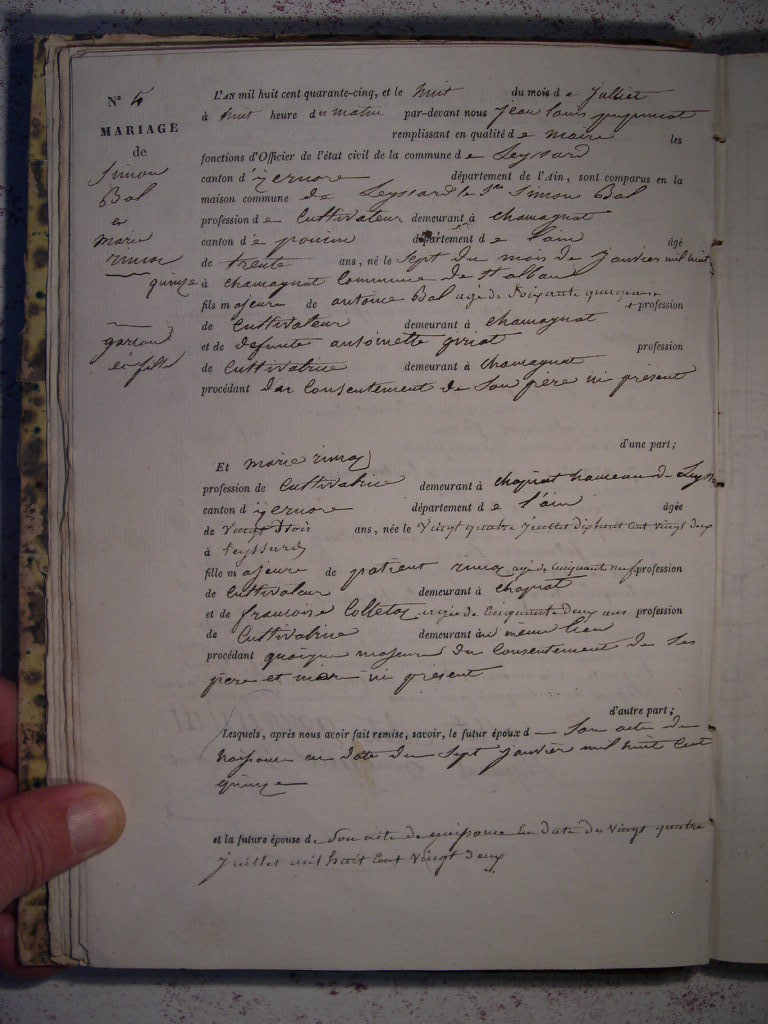 N° 4
MARIAGE
de
Simon
Bal
et
marie
garson
et fille
L'AN mil huit cent quarante-cinq, et le huit du mois de juillet
à huit heure du matin par-devant nous jean louis
remplissant en qualité de maire les
fonctions d'Officier de l'état civil de la commune de Leyssard
canton d'izernore département de l'Ain, sont comparus en la
maison commune de Leyssard le Sr Simon Bal
profession de Cultivateur demeurant à chamagnat
canton de poncin département de l'ain âgé
de trente ans, né le Sept du mois de janvier mil huit
quinze à chamagnat Commune de St alban
fils majeure de antoine Bal agé de Soixante quinze ans profession
de Cultivateur demeurant à chamagnat
et de defunte antoinette profession
de Cultivatrice demeurant à chamagnat
procédant du Consentement de Son père ici présent
d'une part;
Et marie
profession de Cultivatrice demeurant à hameau de
canton d'izernore département de l'ain âgée
de Vingt trois ans, née le Vingt quatre juillet dixhuit Cent vingt deux
à Leyssard
fille majeure de patient agé de Cinquante neuf profession
de Cultivateur demeurant à
et de francoise agée de Cinquante deux ans profession
de Cultivatrice demeurant au même lieu
procédant quoique majeure du Consentement de Ses
père et mère ici present
d'autre part;
Lesquels, après nous avoir fait remise, savoir, le futur époux d Son acte de
naissance en date du Sept janvier mil huit Cent
quinze
et la future épouse de Son acte de naissance En date du Vingt quatre
juillet mil huit Cent vingt deux